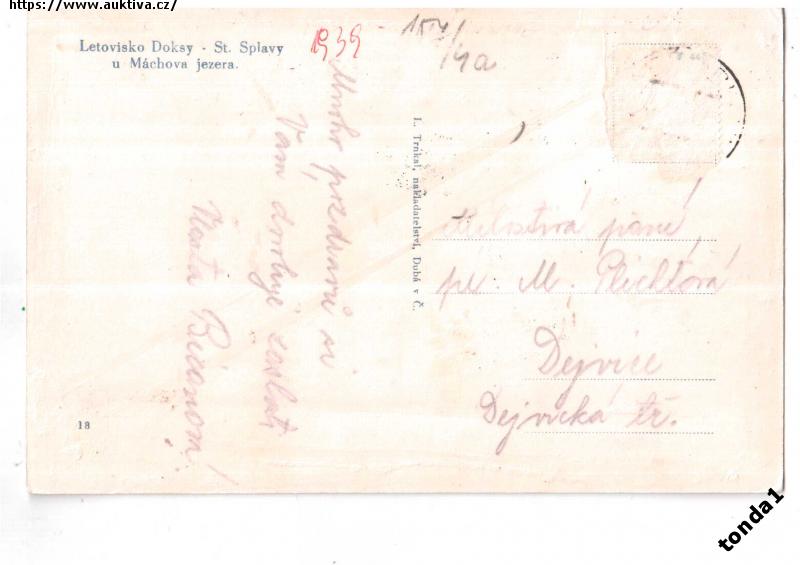 https://www.auktiva.cz/
Letovisko Doksy - St. Splavy
u Máchova jezera.
1939
14a
Mnoho pozdravů si
Vám dovoluje zaslati
L. Trnkal, nakladatelství, Dubá v Č.
Milostivá paní
pí. M. Richtrová
Dejvice
Dejvická tř.
18
tonda1